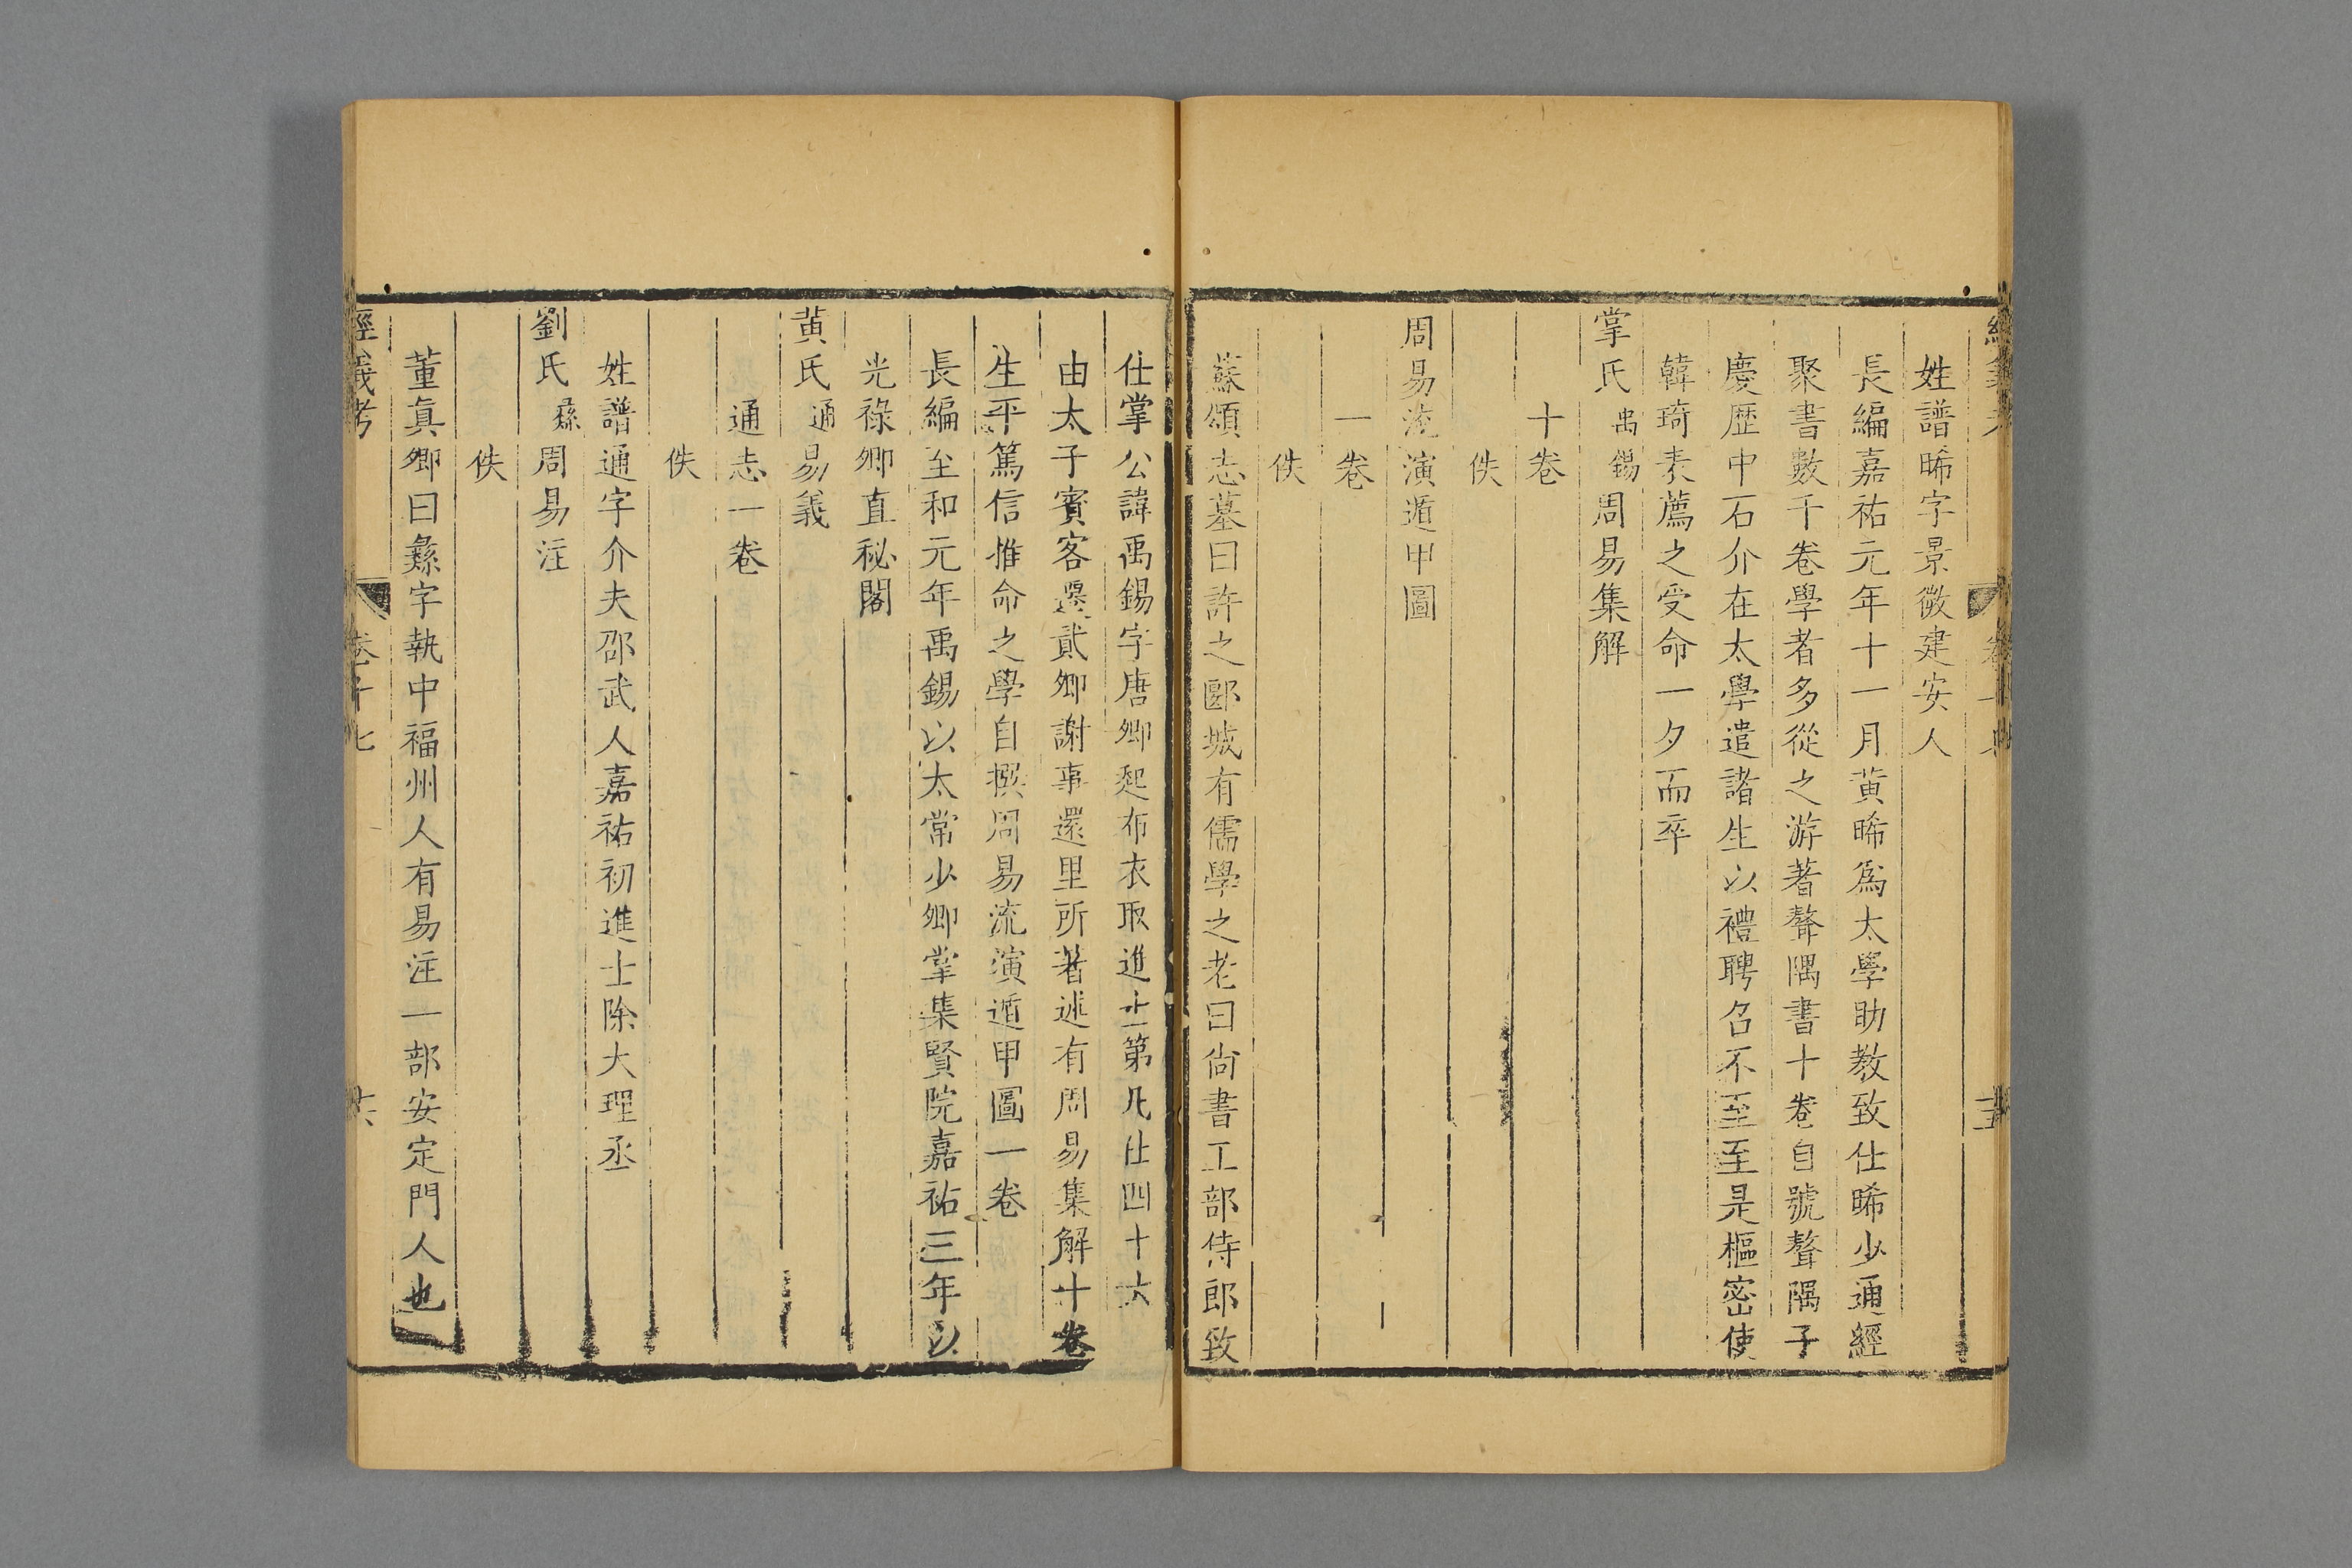 姓譜晞字景微建安人
長編嘉祐元年十一月黄晞爲太學助教致仕晞少通經
聚書數千卷學者多從之游著聱隅書十卷自號聱隅子
慶歴中石介在太學遣諸生以禮聘召不至至是樞密使
韓琦表薦之受命一夕而卒
掌氏禹錫周易集解
十卷
佚
周易流演遁甲圖
一卷
佚
蘇頌志墓曰許之郾城有儒學之老曰尚書工部侍郎致
仕掌公諱禹錫字唐卿起布衣取進士第凡仕四十六
由太子賓客選貳卿謝事還里所著述有周易集解十卷
生平篤信推命之學自撰周易流演遁甲圖一卷
長編至和元年禹錫以太常少卿掌集賢院嘉祐三年以
光祿卿直秘閣
黄氏通易義
通志一卷
佚
姓譜通字介夫邵武人嘉祐初進士除大理丞
劉氏彝周易注
佚
董眞卿曰彝字執中福州人有易注一部安定門人也
經義考 卷十七 十六